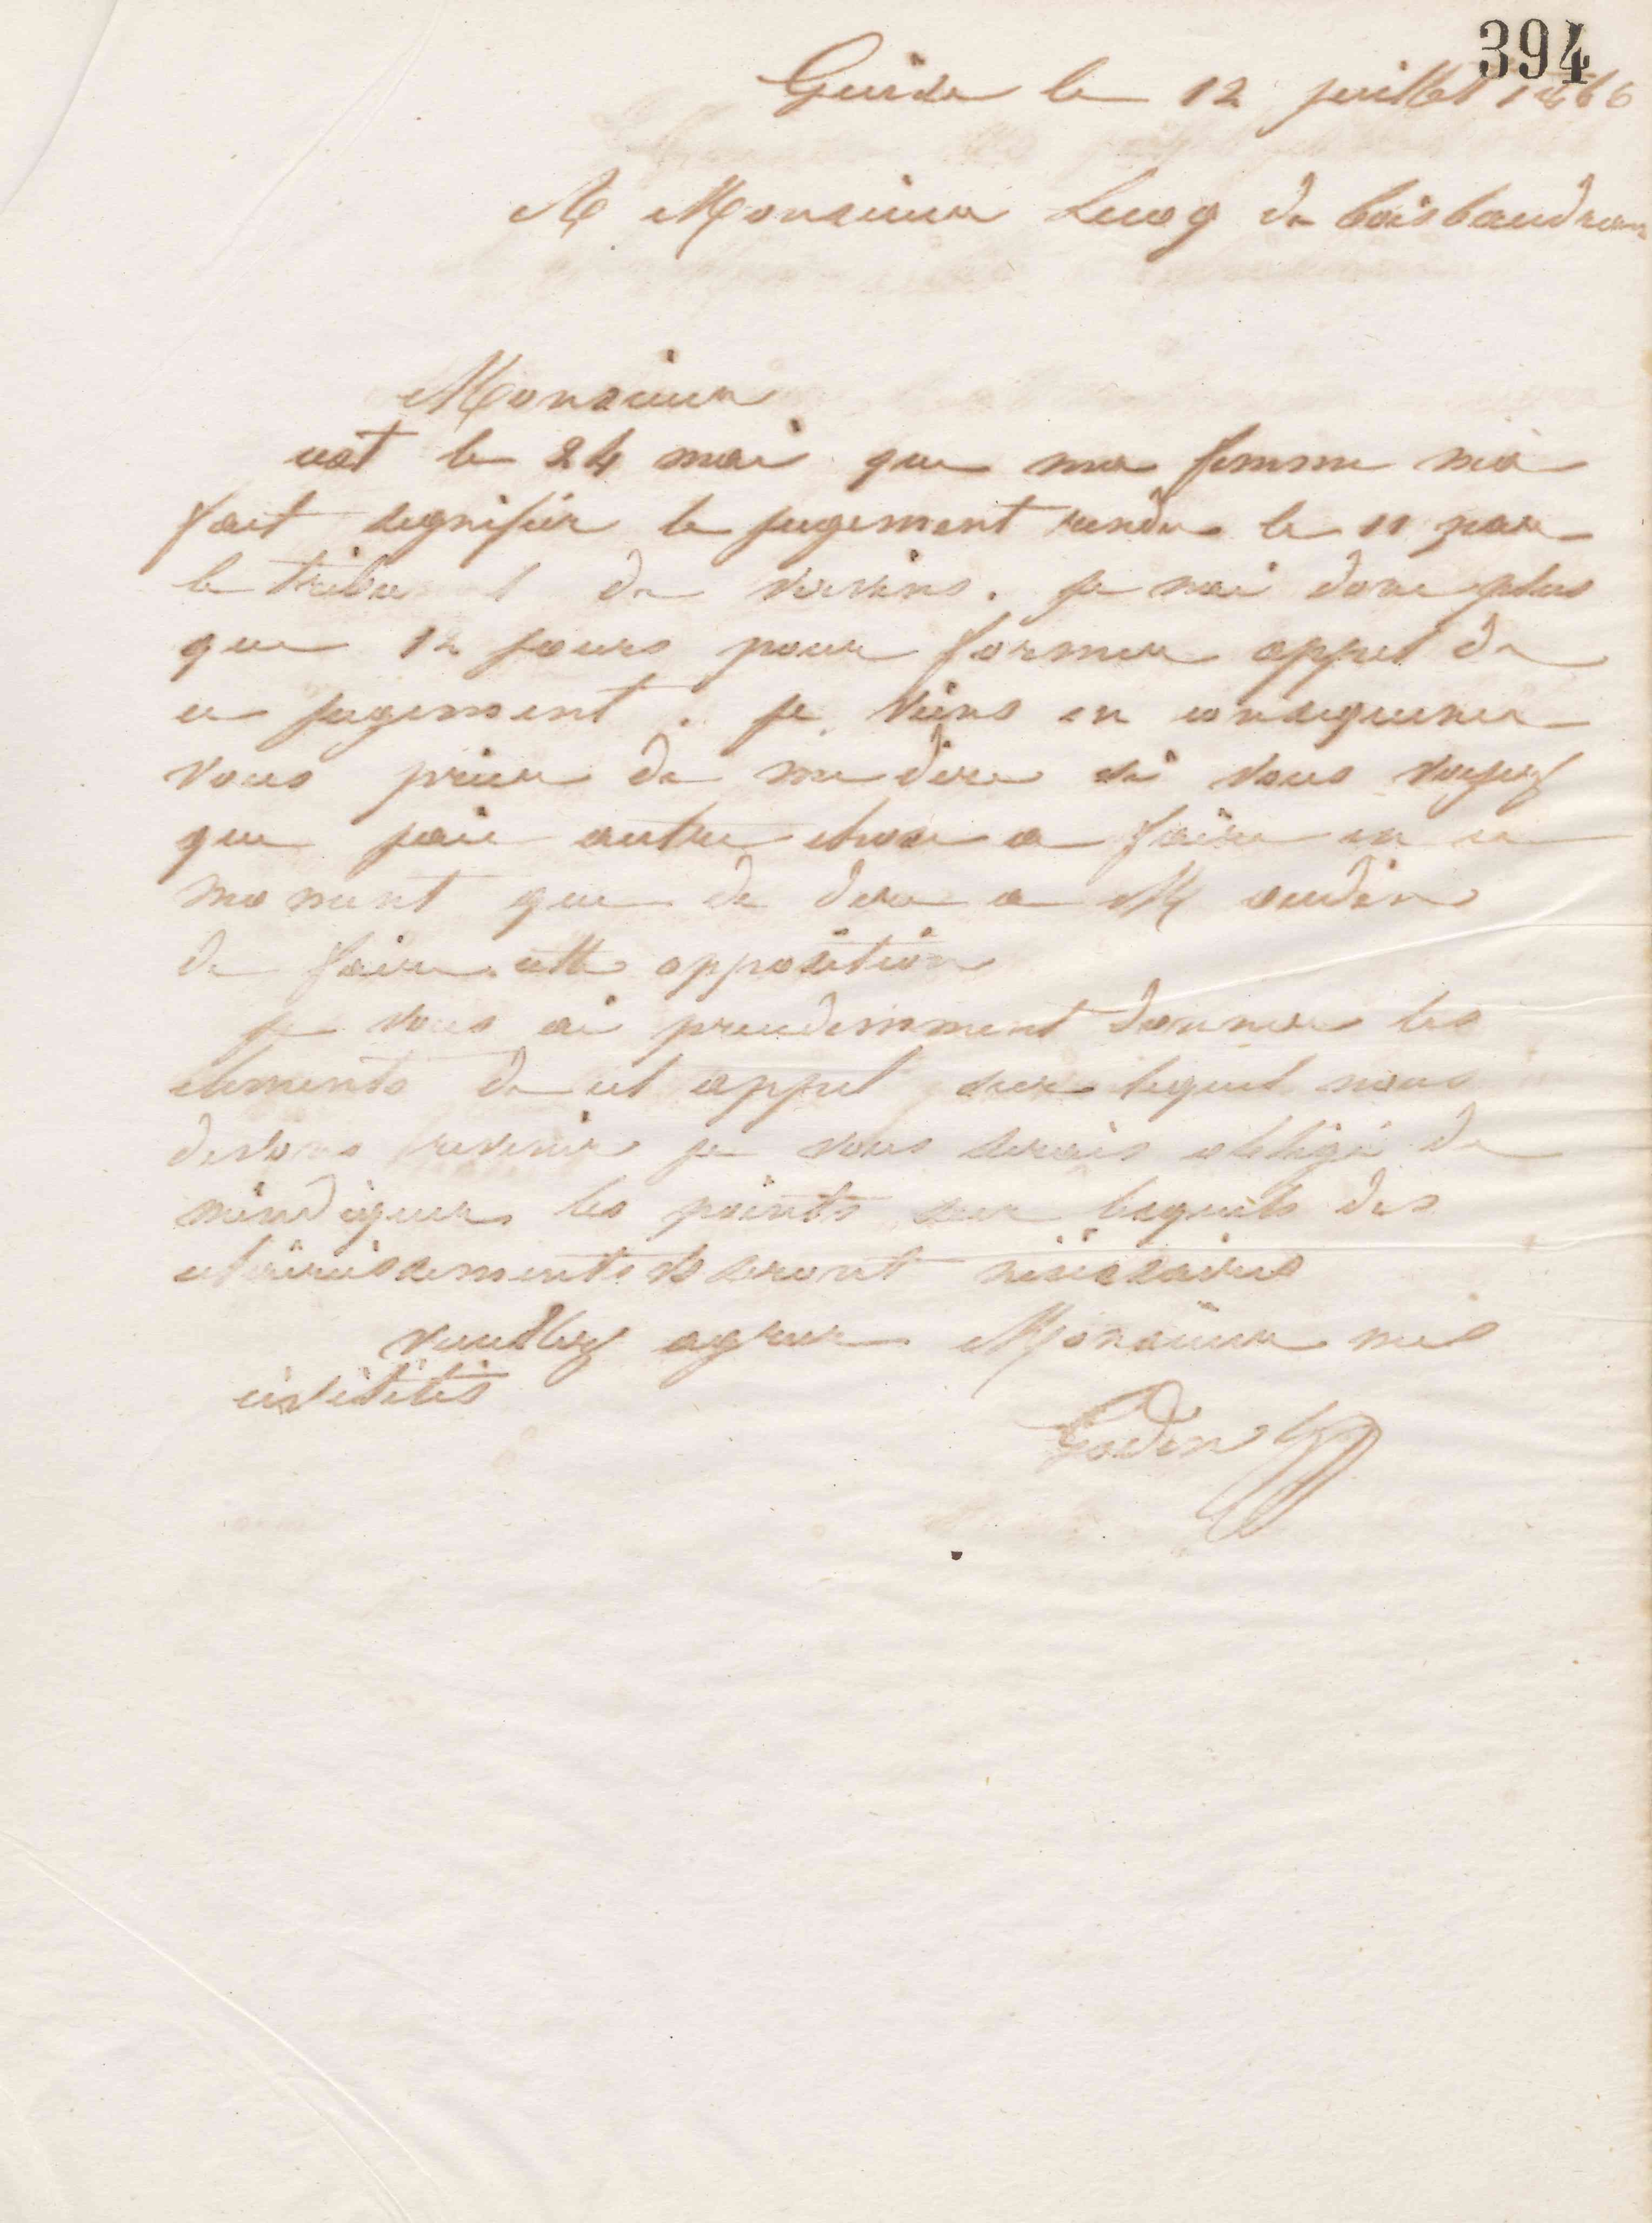 394
Guise le 12 juillet 1866
A Monsieur Lecoq de boisbaudran
Monsieur
cest le 24 mai que ma femme ma
fait signifier le jugement rendu le 11 par
le tribu l de vervins. je nai donc plus
que 12 jours pour former appel de
ce jugement. je viens en consequence
vous prier de me dire si vous voyez
que jaie autre chose a faire en ce
moment que de dire a M oudin
de faire cette opposition
je vous ai precedemment donner les
elements de cet appel sur lequel nous
devons revenir je vous serais obligé de
mindiquer les points sur lesquels des
eclaircissements seront nécéssaires
veuillez agreer Monsieur mes
civilités
Godin